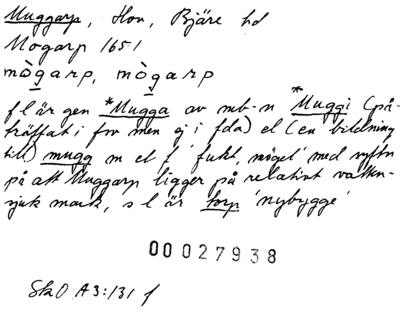 Muggarp, Hov, Bjäre hd
Mogarp 1651
mògarp, mògarp
f l är gen *Mugga av mbn *Muggi (på-
träffat i fvn men ej i fda) el (en bildning
till) mugg m el f 'fukt, mögel' med syftn
på att Muggarp ligger på relativt vatten-
sjuk mark, s l är torp 'nybygge'
00027938
SkO A3:131 f